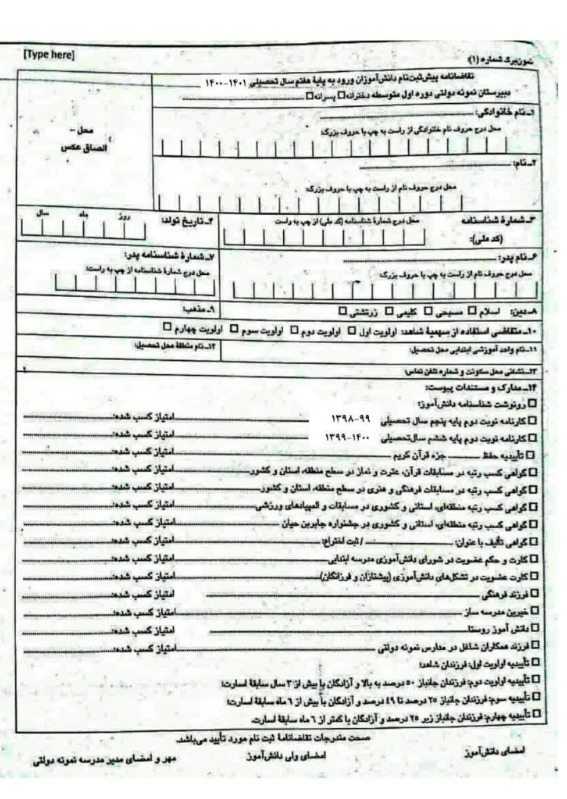 [Type here]
نمون‌برگ شماره (۱):
تقاضانامه پیش‌ثبت‌نام دانش‌آموزان ورود به پایهٔ هفتم سال تحصیلی ۱۴۰۱-۱۴۰۰
دبیرستان نمونه دولتی دوره اول متوسطه دخترانه□ پسرانه□
محل
الصاق عکس
۱ـ نام خانوادگی:
محل درج حروف نام خانوادگی از راست به چپ با حروف بزرگ:
۲ـ نام:
محل درج حروف نام از راست به چپ با حروف بزرگ:
۳ـ شمارهٔ شناسنامه
(کد ملی):
محل درج شمارهٔ شناسنامه (کد ملی) از چپ به راست
۴ـ تاریخ تولد: روز ماه سال
۶ـ نام پدر:
محل درج حروف نام از راست به چپ با حروف بزرگ:
۷ـ شمارهٔ شناسنامه پدر:
محل درج شمارهٔ شناسنامه از چپ به راست:
۸ـ دین: اسلام □ مسیحی □ کلیمی □ زرتشتی □
۹ـ مذهب:
۱۰ـ متقاضی استفاده از سهمیهٔ شاهد: اولویت اول □ اولویت دوم □ اولویت سوم □ اولویت چهارم □
۱۱ـ نام واحد آموزشی ابتدایی محل تحصیل:
۱۲ـ نام منطقهٔ محل تحصیل:
۱۳ـ نشانی محل سکونت و شماره تلفن تماس:
۱۴ـ مدارک و مستندات پیوست:
□ رونوشت شناسنامه دانش‌آموز:
□ کارنامه نوبت دوم پایه پنجم سال تحصیلی ۹۹-۱۳۹۸ امتیاز کسب شده:
□ کارنامه نوبت دوم پایه ششم سال‌تحصیلی ۱۴۰۰-۱۳۹۹ امتیاز کسب شده:
□ تأییدیه حفظ ...... جزء قرآن کریم امتیاز کسب شده:
□ گواهی کسب رتبه در مسابقات قرآن، عترت و نماز در سطح منطقه، استان و کشور امتیاز کسب شده:
□ گواهی کسب رتبه در مسابقات فرهنگی و هنری در سطح منطقه، استان و کشور امتیاز کسب شده:
□ گواهی کسب رتبه منطقه‌ای، استانی و کشوری در مسابقات و المپیادهای ورزشی امتیاز کسب شده:
□ گواهی کسب رتبه منطقه‌ای، استانی و کشوری در جشنواره جابربن حیان امتیاز کسب شده:
□ گواهی تألیف با عنوان: ...... / ثبت اختراع: امتیاز کسب شده:
□ کارت و حکم عضویت در شورای دانش‌آموزی مدرسه ابتدایی امتیاز کسب شده:
□ کارت عضویت در تشکل‌های دانش‌آموزی (پیشتازان و فرزانگان) امتیاز کسب شده:
□ فرزند فرهنگی امتیاز کسب شده:
□ خیرین مدرسه ساز امتیاز کسب شده:
□ دانش آموز روستا امتیاز کسب شده:
□ فرزند همکاران شاغل در مدارس نمونه دولتی امتیاز کسب شده:
□ تأییدیه اولویت اول: فرزندان شاهد:
□ تأییدیه اولویت دوم: فرزندان جانباز ۵۰ درصد به بالا و آزادگان با بیش از ۳ سال سابقهٔ اسارت:
□ تأییدیه سوم: فرزندان جانباز ۲۵ درصد تا ۴۹ درصد و آزادگان با بیش از ۶ ماه سابقهٔ اسارت:
□ تأییدیه چهارم: فرزندان جانباز زیر ۲۵ درصد و آزادگان با کمتر از ۶ ماه سابقهٔ اسارت.
صحت مندرجات تقاضانامهٔ ثبت نام مورد تأیید می‌باشد.
امضای دانش‌آموز امضای ولی دانش‌آموز مهر و امضای مدیر مدرسه نمونه دولتی